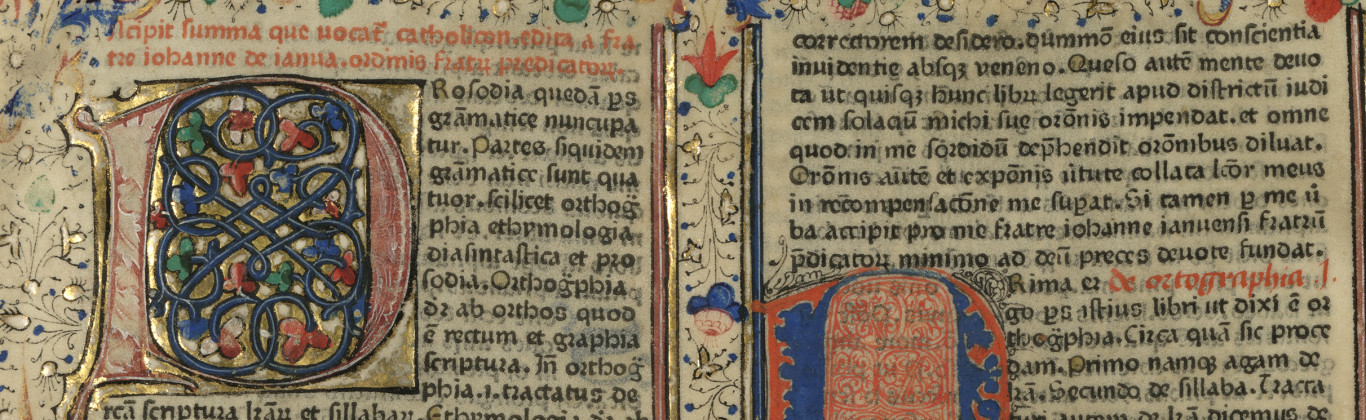 Incipit summa que vocat᷑ catholicon. edita a fra
tre iohanne de ianua. ordinis fratrꝝ predicatorꝝ.
PRosodia quedā ps
grāmatice nuncupa
tur. Partes siquidem
grāmatice sunt qua
tuor. scilicet orthog̃
phia ethymologia
diasintastica et pro
sodia. Orthog̃phia
dr̄ ab orthos quod
ē rectum et graphia
scriptura. Iñ orthog̃
phia .i. tractatus de
rcā scriptura lrāꝝ et sillabaꝝ. Ethymologi
correctorem desidero. dummō eius sit conscientia
inuidentie absqꝫ veneno. Queso autē mente deuo
ta ut quisqꝫ hunc librꝝ legerit apud districtū iudi
cem solaqū michi sue orōnis impendat. et omne
quod in me sordidū dep̄hendit orōnibus diluat.
Orōnis autē et expōnis ūtute collata lc̄or meus
in recompensacōne me suꝑat. Si tamen ꝑ me ū
ba accipit pro me fratre iohanne ianuensi fratrū
p̄dicatoꝝ minimo ad deū preces deuote fundat.
de ortographia .I.
PRima er
go ps istius libri ut dixi ē or
thog̃phia. Circa quā sic proce
dam. Primo namqꝫ agam de
lrā. Secundo de sillaba. Tracta